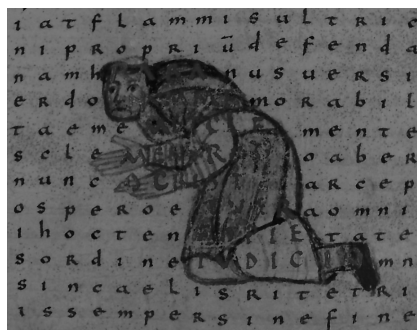 iatflammisultric
nipropriūdefenda
namh nusuersi
erdo morabil
taeme mente
scle oaber
nunc arcep
osperoe aomni
ihocten IEtate
sordine DICI mn
sincaelisritetri
issempersinefine